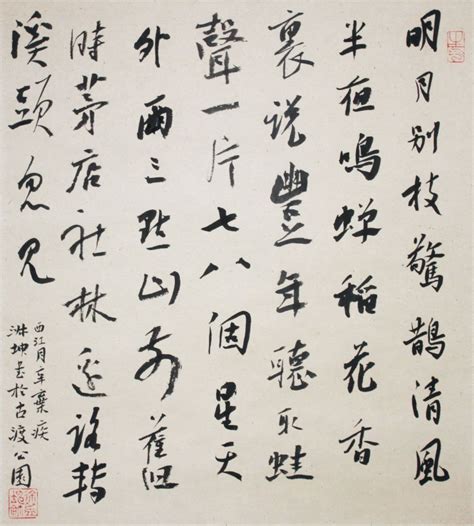 明月别枝驚鵲清風
半夜鳴蝉稻花香
裏説豐年聽取蛙
聲一片七八個星天
外兩三點山前舊
時茅店社林邊路轉
溪頭忽見
西江月辛棄疾
坤書於古渡公園